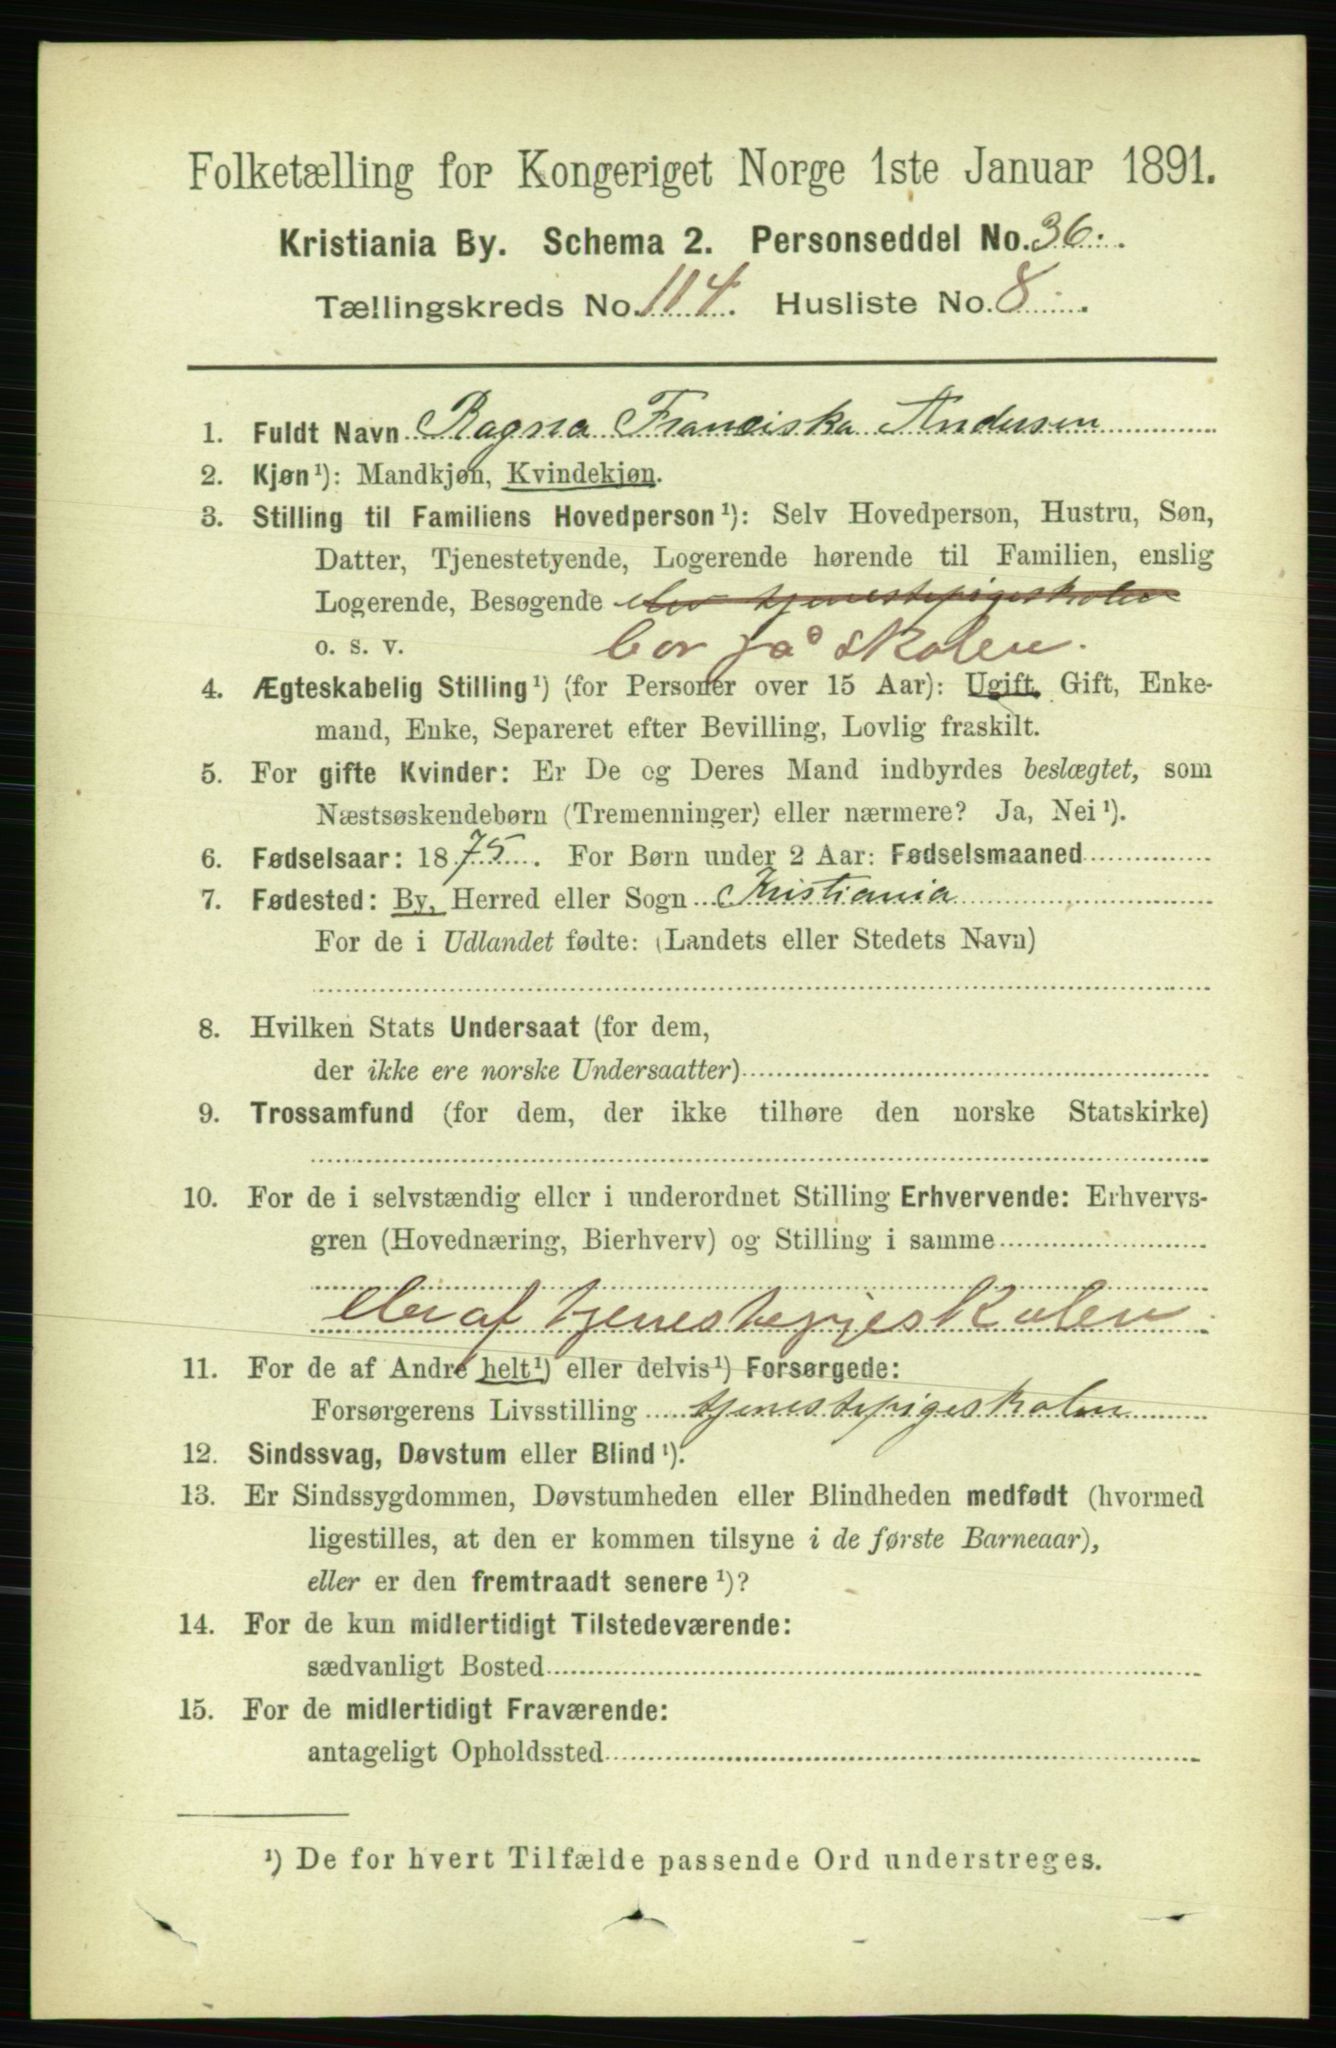 Folketælling for Kongeriget Norge 1ste Januar 1891.
Kristiania By. Schema 2. Personseddel No. 36.
Tællingskreds No. 114. Husliste No. 8.
1. Fuldt Navn Ragna Franciska Andersen
2. Kjøn¹): Mandkjøn, Kvindekjøn.
3. Stilling til Familiens Hovedperson¹): Selv Hovedperson, Hustru, Søn,
Datter, Tjenestetyende, Logerende hørende til Familien, enslig
Logerende, Besøgende elev tjenestepigeskolen
o. s. v. bor på skolen.
4. Ægteskabelig Stilling¹) (for Personer over 15 Aar): Ugift, Gift, Enke-
mand, Enke, Separeret efter Bevilling, Lovlig fraskilt.
5. For gifte Kvinder: Er De og Deres Mand indbyrdes beslægtet, som
Næstsøskendebørn (Tremenninger) eller nærmere? Ja, Nei¹).
6. Fødselsaar: 1875. For Børn under 2 Aar: Fødselsmaaned
7. Fødested: By, Herred eller Sogn Kristiania
For de i Udlandet fødte: (Landets eller Stedets Navn)
8. Hvilken Stats Undersaat (for dem,
der ikke ere norske Undersaatter)
9. Trossamfund (for dem, der ikke tilhøre den norske Statskirke)
10. For de i selvstændig eller i underordnet Stilling Erhvervende: Erhvervs-
gren (Hovednæring, Bierhverv) og Stilling i samme
elev af tjenestepigeskolen
11. For de af Andre helt¹) eller delvis¹) Forsørgede:
Forsørgerens Livsstilling tjenestepigeskolen
12. Sindssvag, Døvstum eller Blind¹).
13. Er Sindssygdommen, Døvstumheden eller Blindheden medfødt (hvormed
ligestilles, at den er kommen tilsyne i de første Barneaar),
eller er den fremtraadt senere¹)?
14. For de kun midlertidigt Tilstedeværende:
sædvanligt Bosted
15. For de midlertidigt Fraværende:
antageligt Opholdssted
¹) De for hvert Tilfælde passende Ord understreges.